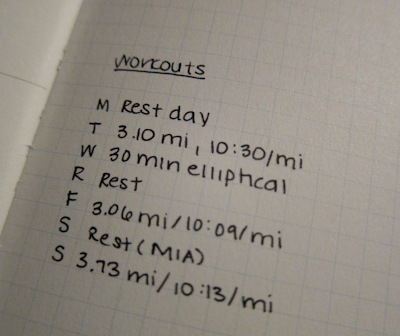 Workouts
M Rest day
T 3.10 mi, 10:30/mi
W 30 min elliptical
R Rest
F 3.06 mi/10:09/mi
S Rest (MIA)
S 3.73 mi/10:13/mi